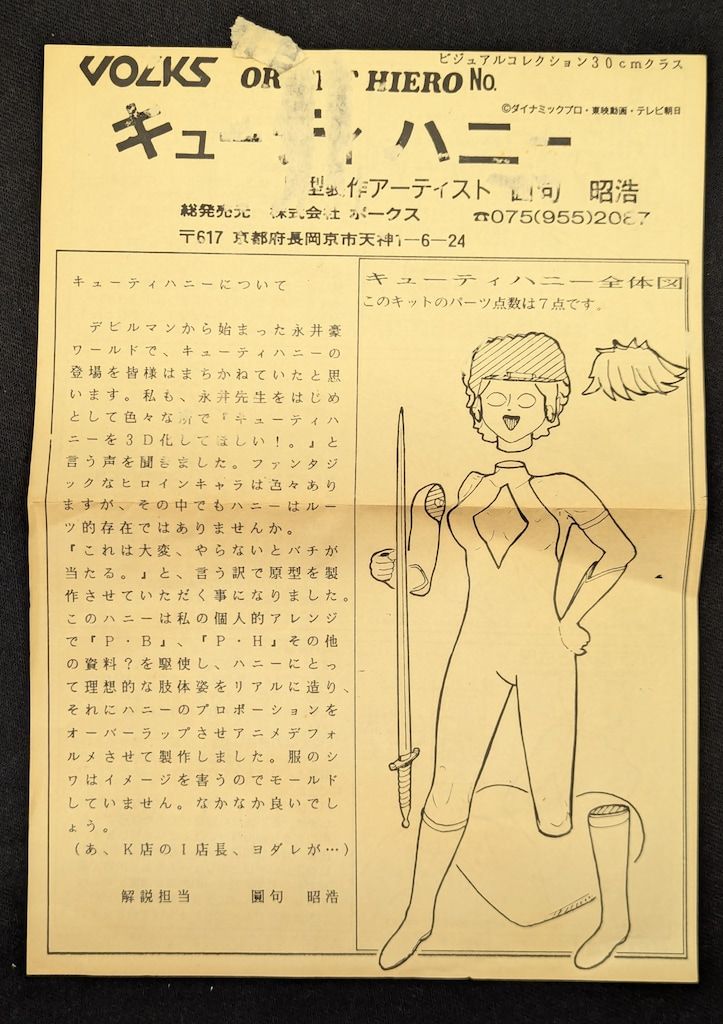 VOLKS OR HIERO No.
ビジュアルコレクション30cmクラス
©ダイナミックプロ・東映動画・テレビ朝日
キューティハニー
型製作アーティスト 圓句 昭浩
総発売元 株式会社 ボークス ☎075(955)2087
〒617 京都府長岡京市天神1-6-24
キューティハニーについて
デビルマンから始まった永井豪
ワールドで、キューティハニーの
登場を皆様はまちかねていたと思
います。私も、永井先生をはじめ
として色々な所で『キューティハ
ニーを3D化してほしい!。』と
言う声を聞きました。ファンタジ
ックなヒロインキャラは色々あり
ますが、その中でもハニーはルー
ツ的存在ではありませんか。
『これは大変、やらないとバチが
当たる。』と、言う訳で原型を製
作させていただく事になりました。
このハニーは私の個人的アレンジ
で『P・B』、『P・H』その他
の資料?を駆使し、ハニーにとっ
て理想的な肢体姿をリアルに造り、
それにハニーのプロポーションを
オーバーラップさせアニメデフォ
ルメさせて製作しました。服のシ
ワはイメージを害うのでモールド
していません。なかなか良いでし
ょう。
(あ、K店のI店長、ヨダレが…)
解説担当 圓句 昭浩
キューティハニー全体図
このキットのパーツ点数は7点です。